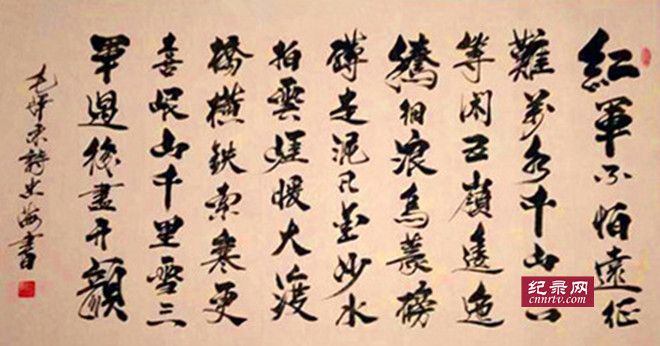 紅軍不怕遠征
難萬水千山只
等閑五嶺逶迤
騰細浪烏蒙磅
礴走泥丸金沙水
拍雲崖暖大渡
橋橫鐵索寒更
喜岷山千里雪三
軍過後盡开顏
毛澤東詩史海書
纪录网
cnnrtv.com